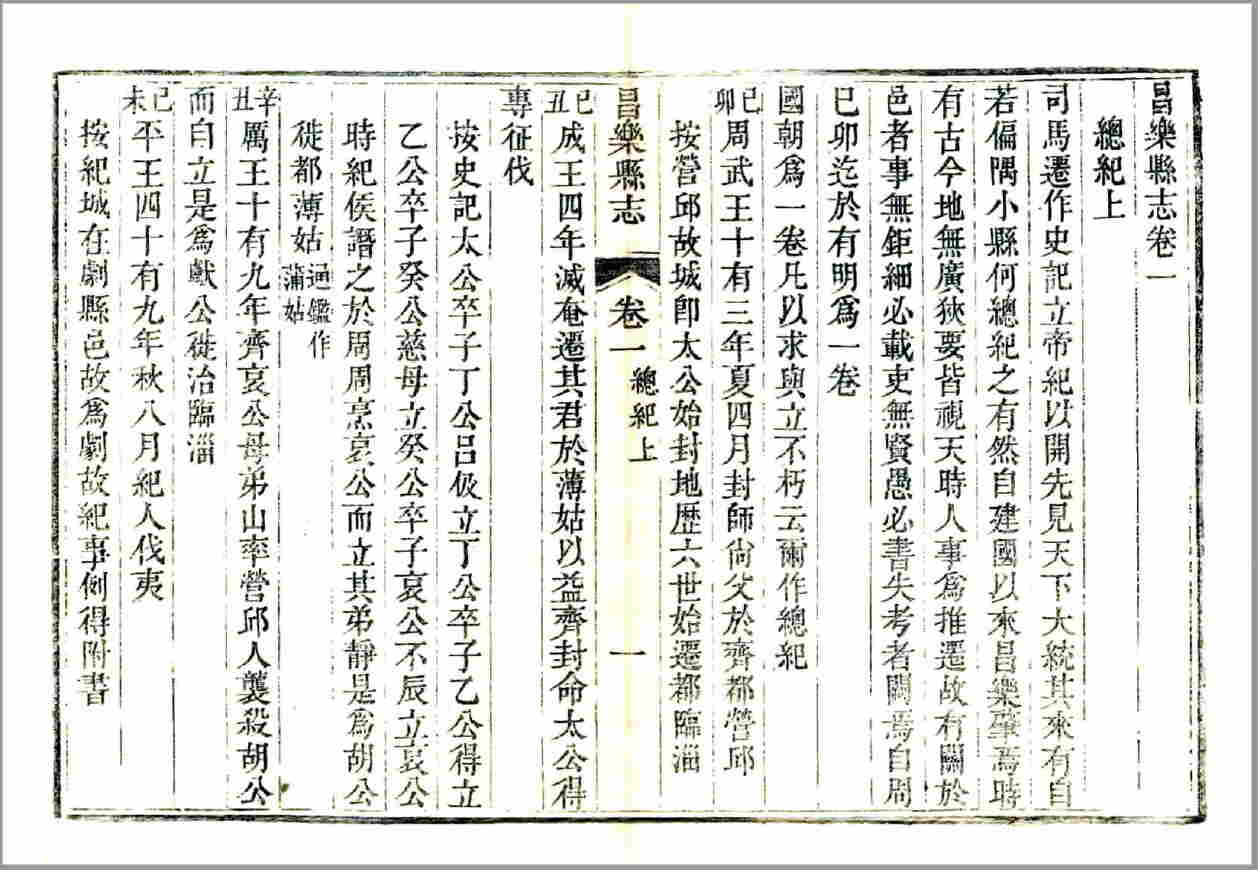 昌樂縣志卷一
總紀上
司馬遷作史記立帝紀以開先見天下大統其來有自
若偏隅小縣何總紀之有然自建國以來昌樂肇焉時
有古今地無廣狹要皆視天時人事爲推遷故有關於
邑者事無鉅細必載吏無賢愚必書失考者闕焉自周
己卯迄於有明爲一卷
國朝爲一卷凡以求與立不朽云爾作總紀
己卯周武王十有三年夏四月封師尙父於齊都營邱
按營邱故城卽太公始封地歷六世始遷都臨淄
昌樂縣志
卷一
總紀上
一
己丑成王四年滅奄遷其君於薄姑以益齊封命太公得
專征伐
按史記太公卒子丁公呂伋立丁公卒子乙公得立
乙公卒子癸公慈母立癸公卒子哀公不辰立哀公
時紀侯譖之於周周烹哀公而立其弟靜是爲胡公
徙都薄姑通鑑作蒲姑
辛丑厲王十有九年齊哀公母弟山率營邱人襲殺胡公
而自立是爲獻公徙治臨淄
己未平王四十有九年秋八月紀人伐夷
按紀城在劇縣邑故爲劇故紀事例得附書